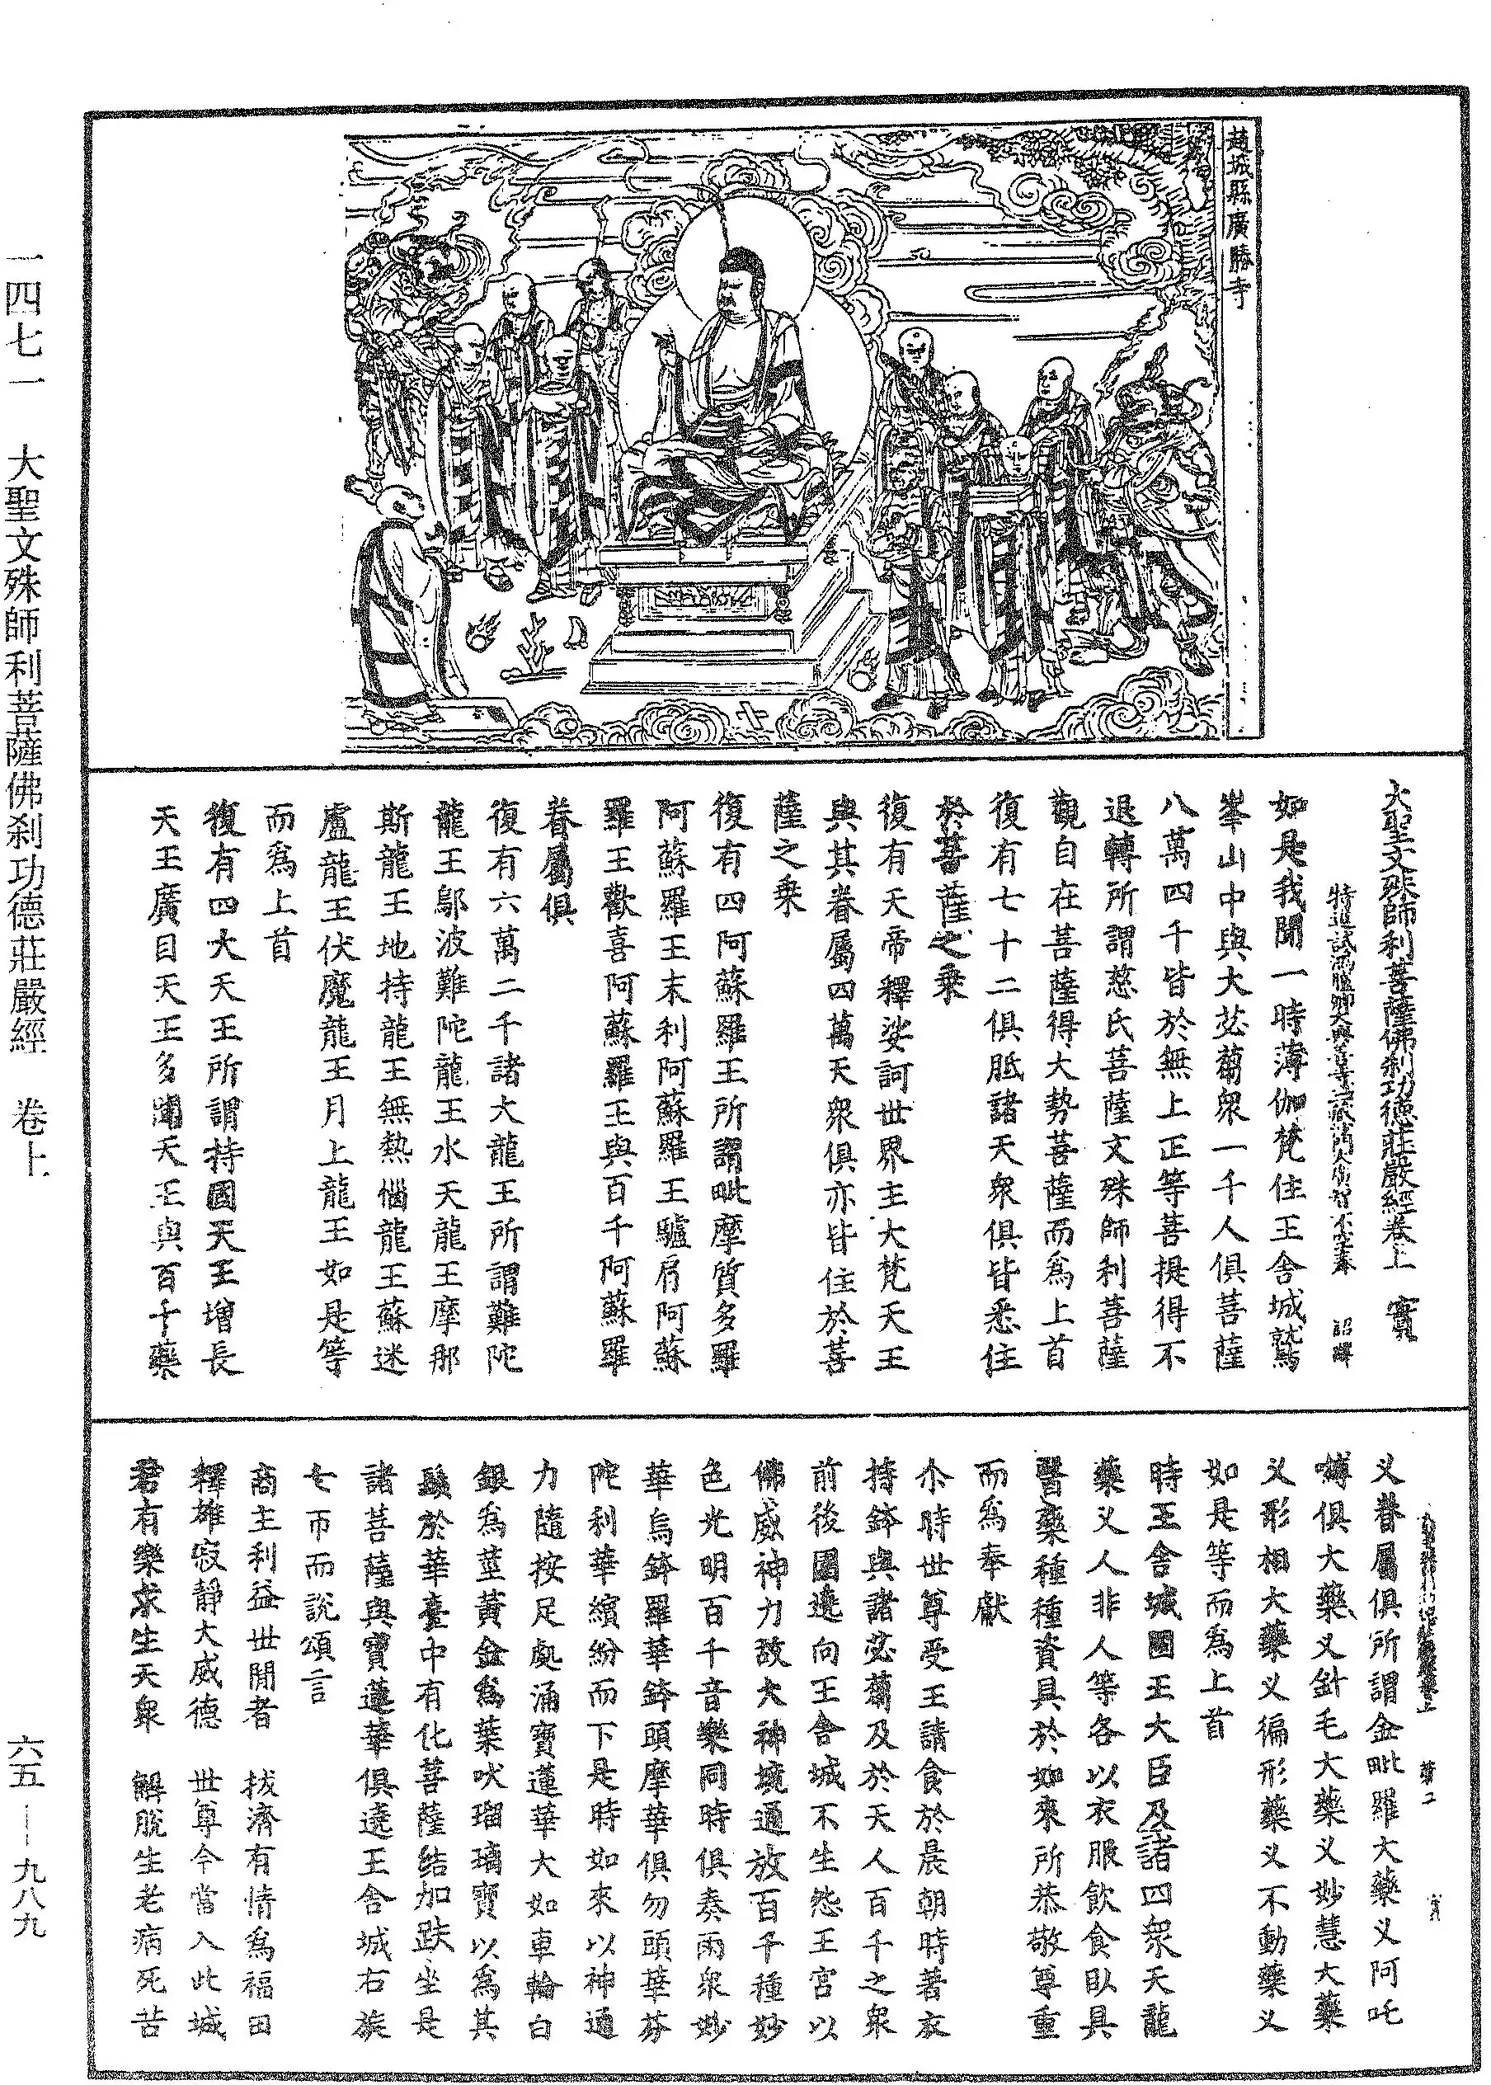 趙城縣廣勝寺
大聖文殊師利菩薩佛刹功德莊嚴經卷上　寶
特進試鴻臚卿大興善寺三藏沙門大廣智不空奉　詔譯
如是我聞一時薄伽梵住王舍城鷲
峯山中與大苾蒭衆一千人俱菩薩
八萬四千皆於無上正等菩提得不
退轉所謂慈氏菩薩文殊師利菩薩
觀自在菩薩得大勢菩薩而爲上首
復有七十二俱胝諸天衆俱皆悉住
於菩薩之乗
復有天帝釋娑訶世界主大梵天王
與其眷屬四萬天衆俱亦皆住於菩
薩之乗
復有四阿蘇羅王所謂毗摩質多羅
阿蘇羅王末利阿蘇羅王驢肩阿蘇
羅王歡喜阿蘇羅王與百千阿蘇羅
眷屬俱
復有六萬二千諸大龍王所謂難陀
龍王鄔波難陀龍王水天龍王摩那
斯龍王地持龍王無熱惱龍王蘇迷
盧龍王伏魔龍王月上龍王如是等
而爲上首
復有四大天王所謂持國天王增長
天王廣目天王多聞天王與百千藥
义眷屬俱所謂金毗羅大藥义阿吒
嚩俱大藥义針毛大藥义妙慧大藥
义形相大藥义徧形藥义不動藥义
如是等而爲上首
時王舍城國王大臣及諸四衆天龍
藥义人非人等各以衣服飲食卧具
醫藥種種資具於如來所恭敬尊重
而爲奉獻
尒時世尊受王請食於晨朝時著衣
持鉢與諸苾蒭及於天人百千之衆
前後圍遶向王舍城不生怨王宮以
佛威神力故大神境通放百千種妙
色光明百千音樂同時俱奏雨衆妙
華烏鉢羅華鉢頭摩華俱勿頭華芬
陀利華繽紛而下是時如來以神通
力隨按足處涌寶蓮華大如車輪白
銀爲莖黃金爲葉吠瑠璃寶以爲其
鬚於華臺中有化菩薩結加趺坐是
諸菩薩與寶蓮華俱遶王舍城右旋
七帀而說頌言
商主利益世間者　拔濟有情爲福田
釋雄寂靜大威德　世尊今當入此城
若有樂求生天衆　解脫生老病死苦
一四七一　大聖文殊師利菩薩佛刹功德莊嚴經　卷上
六五—九八九